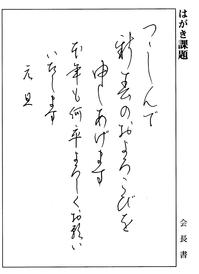 はがき課題
つゝしんで
新春のおよろこびを
申しあげます
本年も何卒よろしくお願い
いたします
元旦
会長書